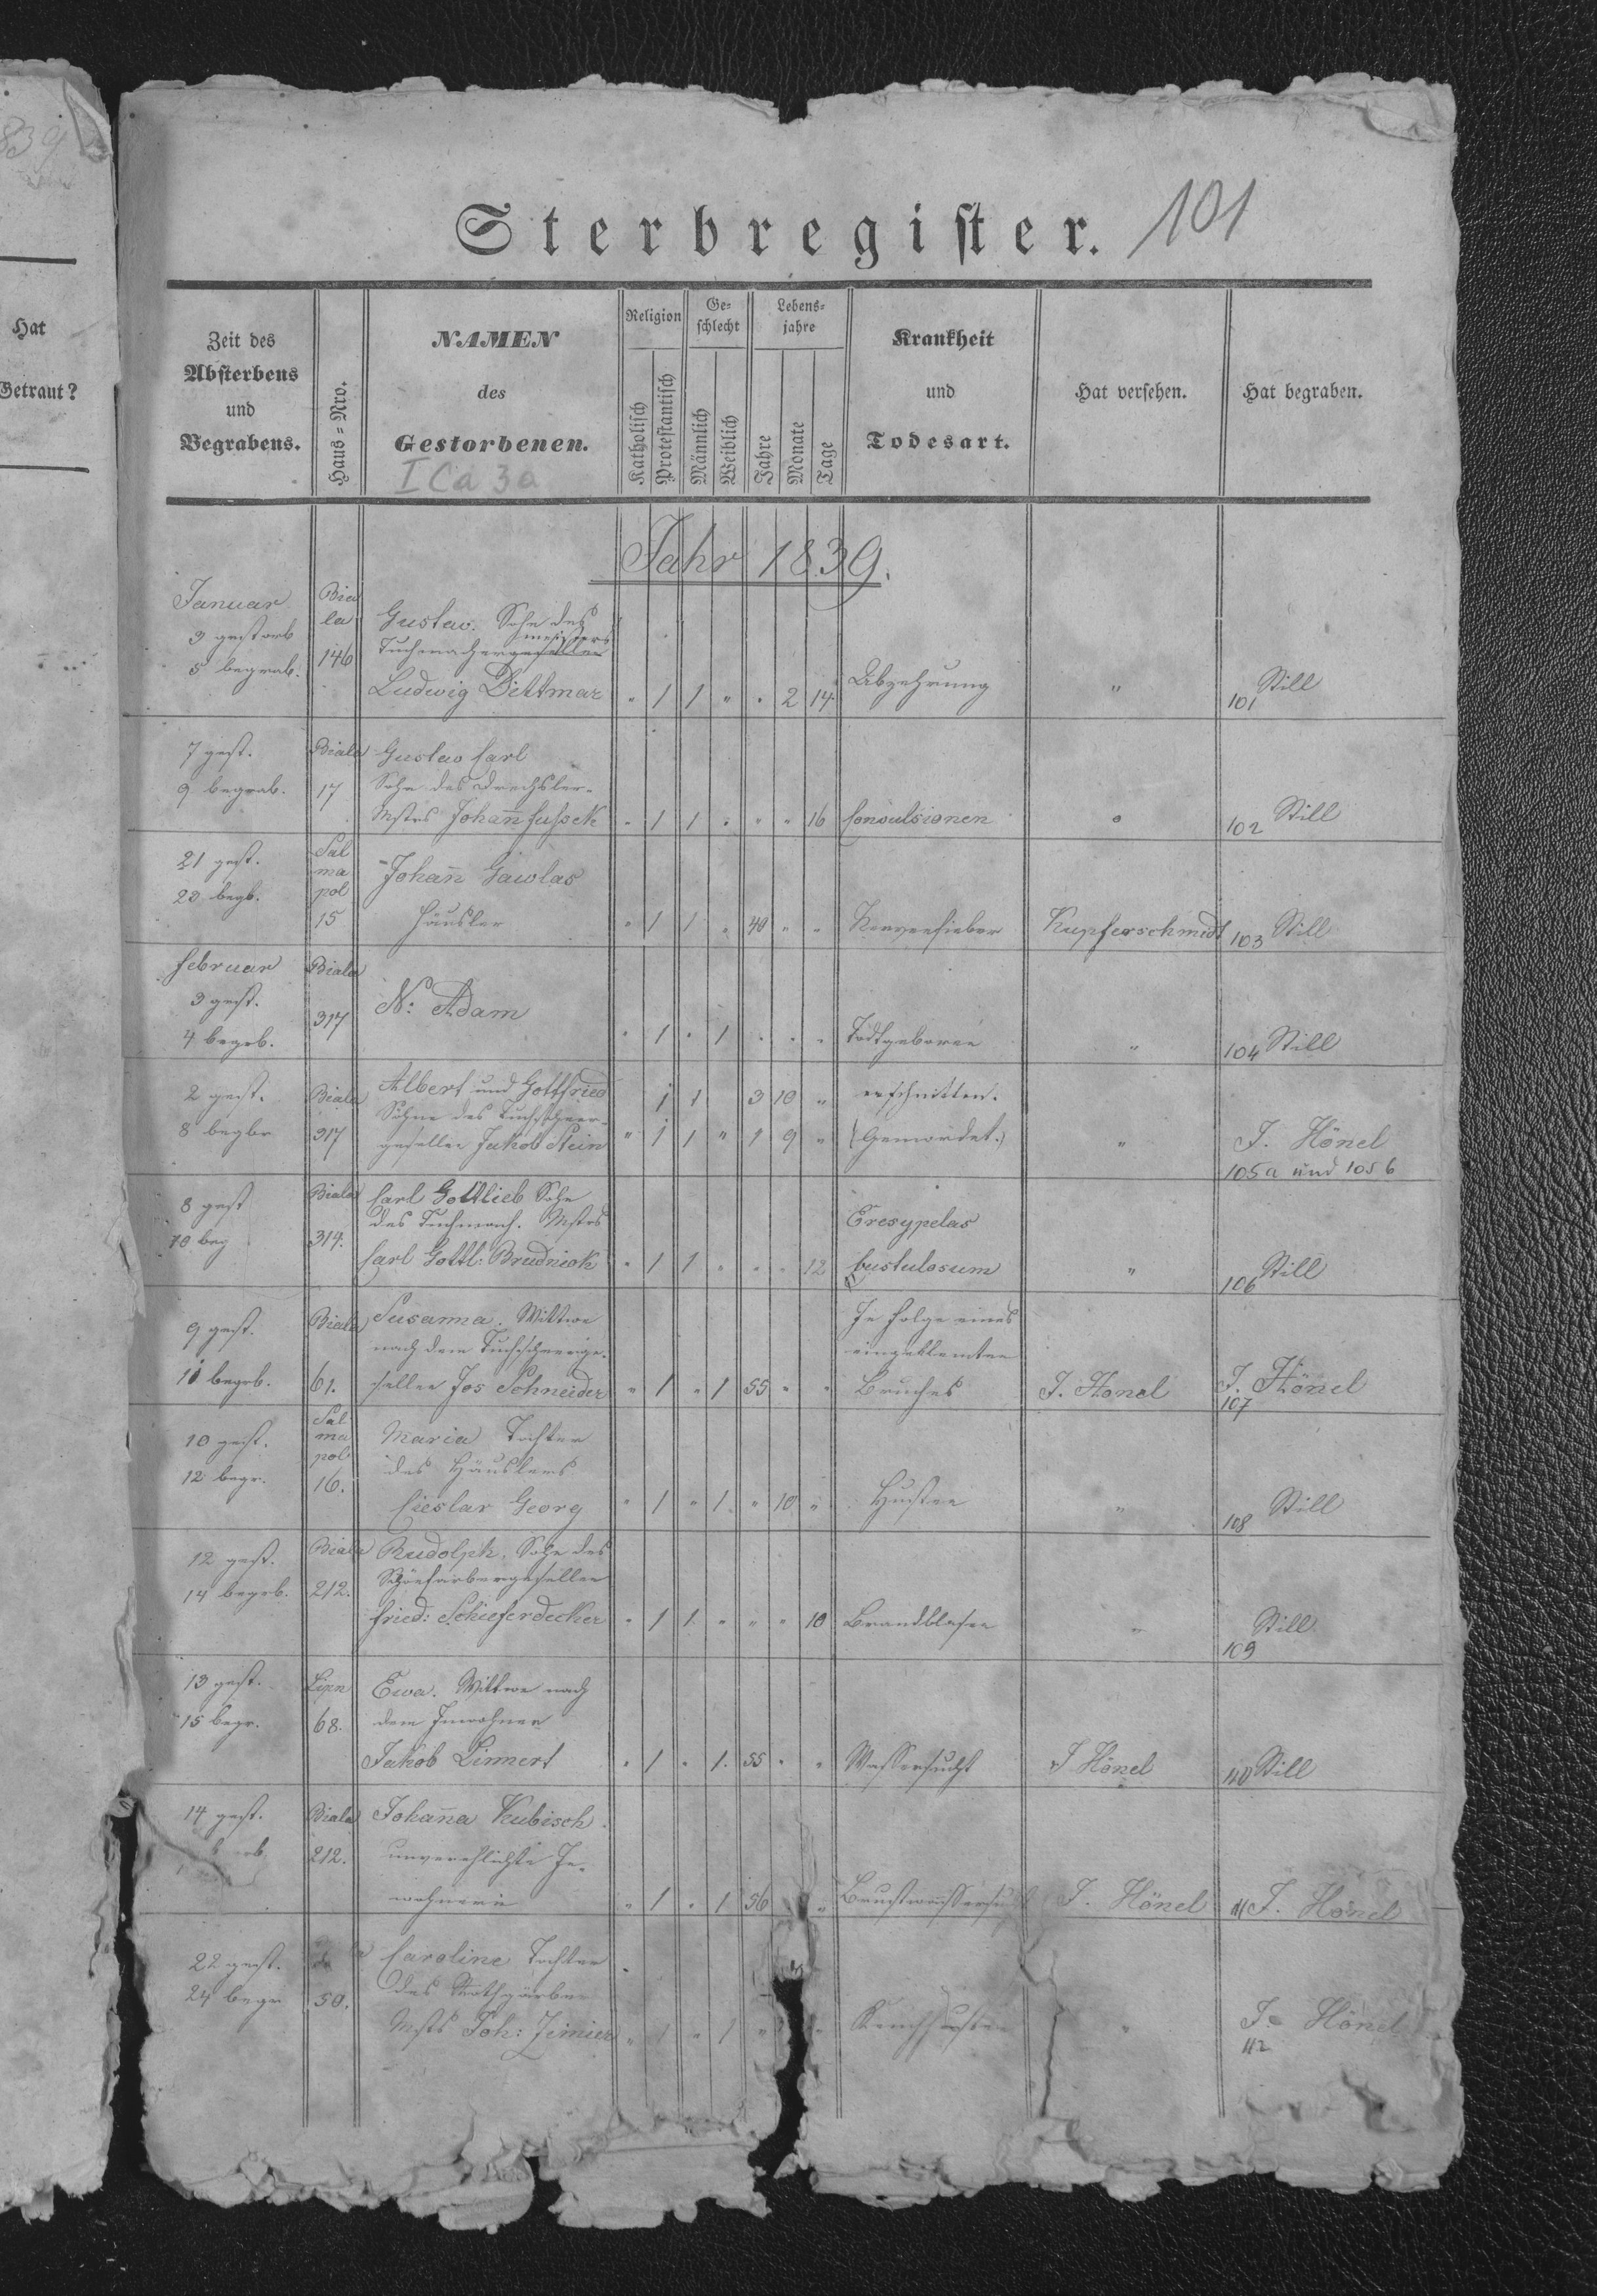 839
Hat
Getraut?
Sterbregister. 101
Zeit des
Absterbens
und
Begrabens.
Haus-Nro.
NAMEN
des
Gestorbenen.
I Ca 3a
Religion
Katholisch
Protestantisch
Ge-
schlecht
Männlich
Weiblich
Lebens-
jahre
Jahre
Monate
Tage
Krankheit
und
Todesart.
Hat versehen.
Hat begraben.
Jahr 1839.
Januar
3 gestorb
5 begrab.
Bia
la
146
Gustav. Sohn des
meisters
Tuchmachergesellen
Ludwig Dittmar
" 1 1 " " 2 14
Abzehrung
"
101 Still
7 gest.
9 begrab.
Biala
17
Gustav Carl
Sohn des Drechsler-
Mstrs Johann Fussek
" 1 1 " " " 16
Convulsionen
"
102 Still
21 gest.
23 begb.
Sal
ma
pol
15
Johann Gawlas
Häusler
" 1 1 " 40 " "
Nervenfieber
Kupferschmidt
103 Still
Februar
3 gest.
4 begrb.
Biala
317
N: Adam
" 1 " 1 " " "
Todtgeboren
"
104 Still
2 gest.
8 begbr
Biala
317
Albert und Gottfried
Söhne des Tuchscheer-
gesellen Jakob Stein
1 1 3 10 "
" 1 1 " 1 9 "
erschnitten.
(Gemordet.)
"
J. Hönel
105a und 105b
8 gest
10 beg
Biala
314.
Carl Gottlieb Sohn
des Tuchmach. Mstrs
Carl Gottl: Brudniok
" 1 1 " " " 12
Eresypelas
bustulosum
"
106 Still
9 gest.
11 begrb.
Biala
61.
Susanna. Wittwe
nach dem Tuchscheerge-
sellen Jos Schneider
" 1 " 1 55 " "
In Folge eines
eingeklemten
Bruches
J. Hönel
J. Hönel
107
10 gest.
12 begr.
Sal
ma
pol
16.
Maria Tochter
des Häuslers
Cieslar Georg
" 1 " 1 " 10 "
Husten
"
108 Still
12 gest.
14 begrb.
Biala
212.
Rudolph. Sohn des
Schönfärbergesellen
Fried: Schieferdecker
" 1 1 " " " 10
Brandblasen
"
Still
109
13 gest.
15 begr.
Lipn
68.
Ewa. Wittwe nach
dem Inwohner
Jakob Linnert
" 1 " 1. 55 " "
Wassersucht
J Hönel
110 Still
14 gest.
Biala
212.
Johanna Kubisch
unverehlichte In-
wohnerin
" 1 " 1 56 "
Brustwassersu
J. Hönel
111 J. Hönel
22 gest.
24 begr
50.
Caroline Tochter
des Rothgärber
Mstrs Joh:
" 1 " 1 "
Keuchhusten
"
J. Hönel
112